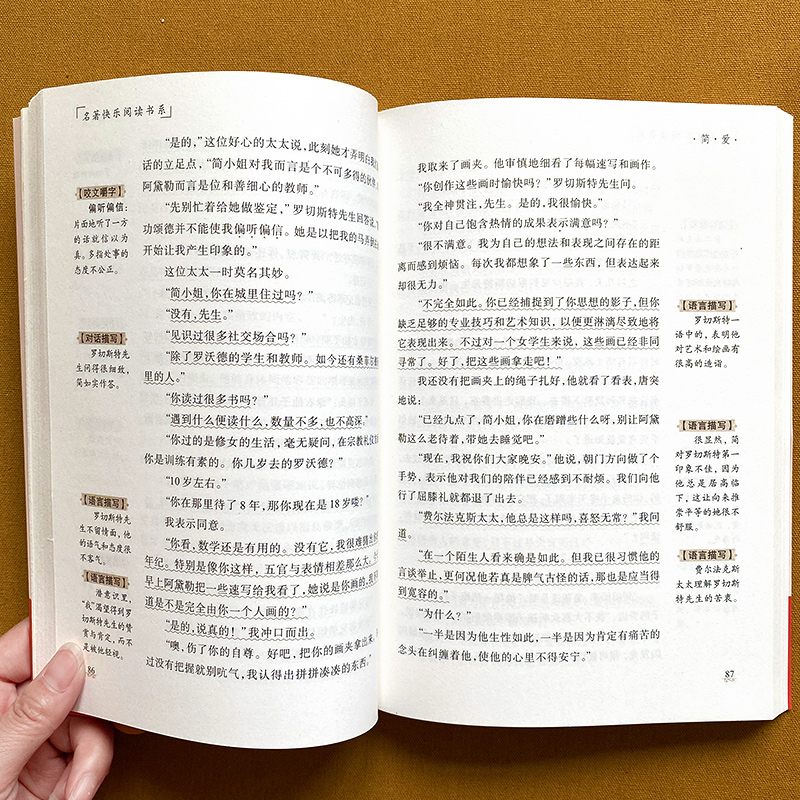 名著快乐阅读书系
【咬文嚼字】
偏听偏信：
片面地听了一方
的话就信以为
真。多指处事的
态度不公正。
【对话描写】
罗切斯特先
生问得很细致，
简如实作答。
【语言描写】
罗切斯特先
生不留情面，他
的语气和态度很
不客气。
【语言描写】
潜意识里，
“我”渴望得到罗
切斯特先生的赞
赏与肯定，而不
是被他轻视。
“是的，”这位好心的太太说，此刻她才弄明白我
话的立足点，“简小姐对我而言是个不可多得的伙伴
阿黛勒而言是位和善细心的教师。”
“先别忙着给她做鉴定，”罗切斯特先生回答说，
功颂德并不能使我偏听偏信。她是以把我的马弄
开始让我产生印象的。”
这位太太一时莫名其妙。
“简小姐，你在城里住过吗？”
“没有，先生。”
“见识过很多社交场合吗？”
“除了罗沃德的学生和教师。如今还有桑菲
里的人。”
“你读过很多书吗？”
“遇到什么便读什么，数量不多，也不高深。”
“你过的是修女的生活，毫无疑问，在宗教礼仪
你是训练有素的。你几岁去的罗沃德？”
“10岁左右。”
“你在那里待了8年，那你现在是18岁喽？”
我表示同意。
“你看，数学还是有用的。没有它，我很难猜出
年纪。特别是像你这样，五官与表情相差那么大。
早上阿黛勒把一些速写给我看了，她说是你画的，我
道是不是完全由你一个人画的？”
“是的，说真的！”我冲口而出。
“噢，伤了你的自尊。好吧，把你的画夹拿出来，
过没有把握就别吭气，我认得出拼拼凑凑的东西。”
86
·简·爱·
我取来了画夹。他审慎地细看了每幅速写和画作。
“你创作这些画时愉快吗？”罗切斯特先生问。
“我全神贯注，先生。是的，我很愉快。”
“你对自己饱含热情的成果表示满意吗？”
“很不满意。我为自己的想法和表现之间存在的距
离而感到烦恼。每次我都想象了一些东西，但表达起来
却很无力。”
“不完全如此。你已经捕捉到了你思想的影子，但你
缺乏足够的专业技巧和艺术知识，以便更淋漓尽致地将
它表现出来。不过对一个女学生来说，这些画已经非同
寻常了。好了，把这些画拿走吧！”
我还没有把画夹上的绳子扎好，他就看了看表，唐突
地说：
“已经九点了，简小姐，你在磨蹭些什么呀，别让阿黛
勒这么老待着，带她去睡觉吧。”
“现在，我祝你们大家晚安。”他说，朝门方向做了个
手势，表示他对我们的陪伴已经感到不耐烦。我们向他
行了屈膝礼就都退了出去。
“费尔法克斯太太，他总是这样吗，喜怒无常？”我问
道。
“在一个陌生人看来确是如此。但我已很习惯他的
言谈举止，更何况他若真是脾气古怪的话，那也是应当得
到宽容的。”
“为什么？”
“一半是因为他生性如此，一半是因为肯定有痛苦的
念头在纠缠着他，使他的心里不得安宁。”
【语言描写】
罗切斯特一
话中的，表明他
对艺术和绘画有
很高的造诣。
【语言描写】
很显然，简
对罗切斯特第一
印象不佳，因为
他总是居高临
下，这让向来推
崇平等的她很不
舒服。
【语言描写】
费尔法克斯
太太理解罗切斯
特先生的苦衷。
87